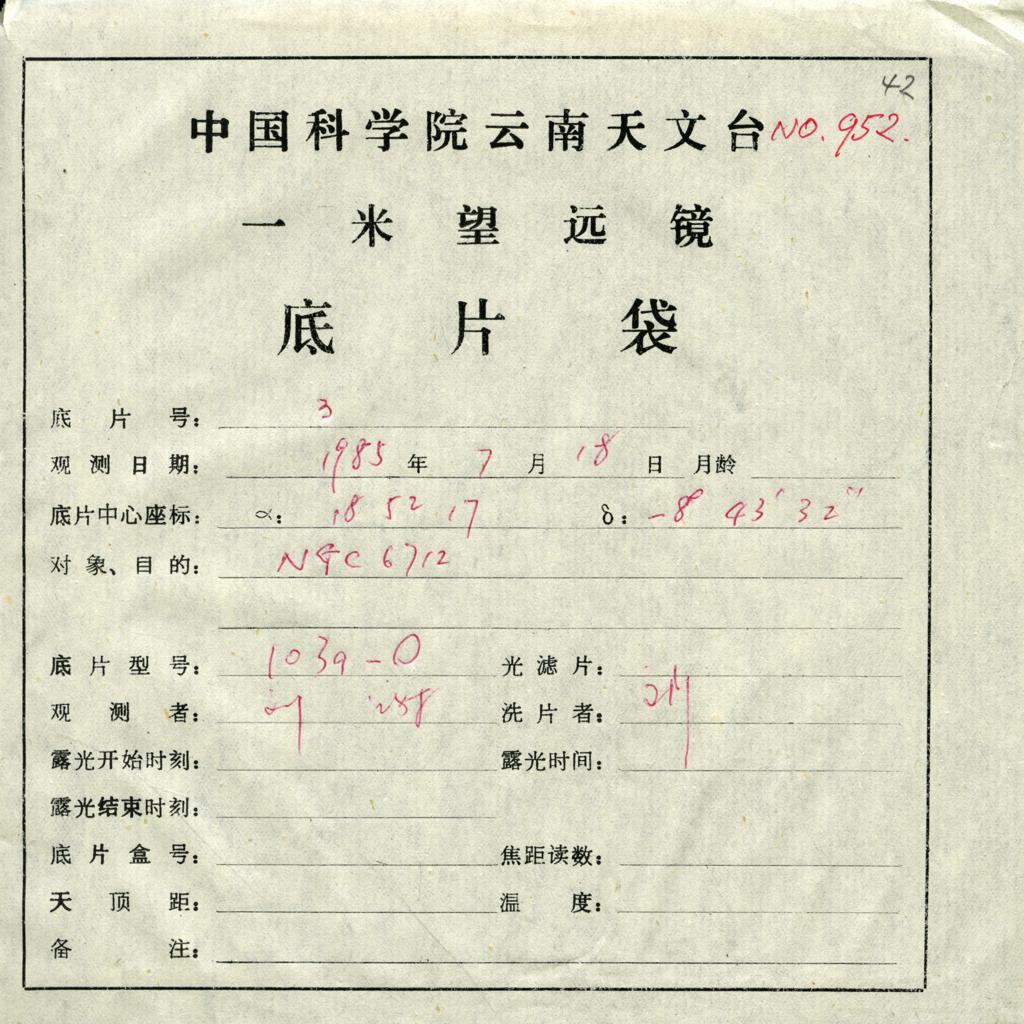 42
中国科学院云南天文台 NO. 952.
一米望远镜
底片袋
底片号: 3
观测日期: 1985 年 7 月 18 日 月龄
底片中心座标: α: 18 52 17 δ: -8° 43′ 32″
对象、目的: NGC 6712
底片型号: 103a-O 光滤片:
观测者: 洗片者:
露光开始时刻: 露光时间:
露光结束时刻:
底片盒号: 焦距读数:
天顶距: 温度:
备注: